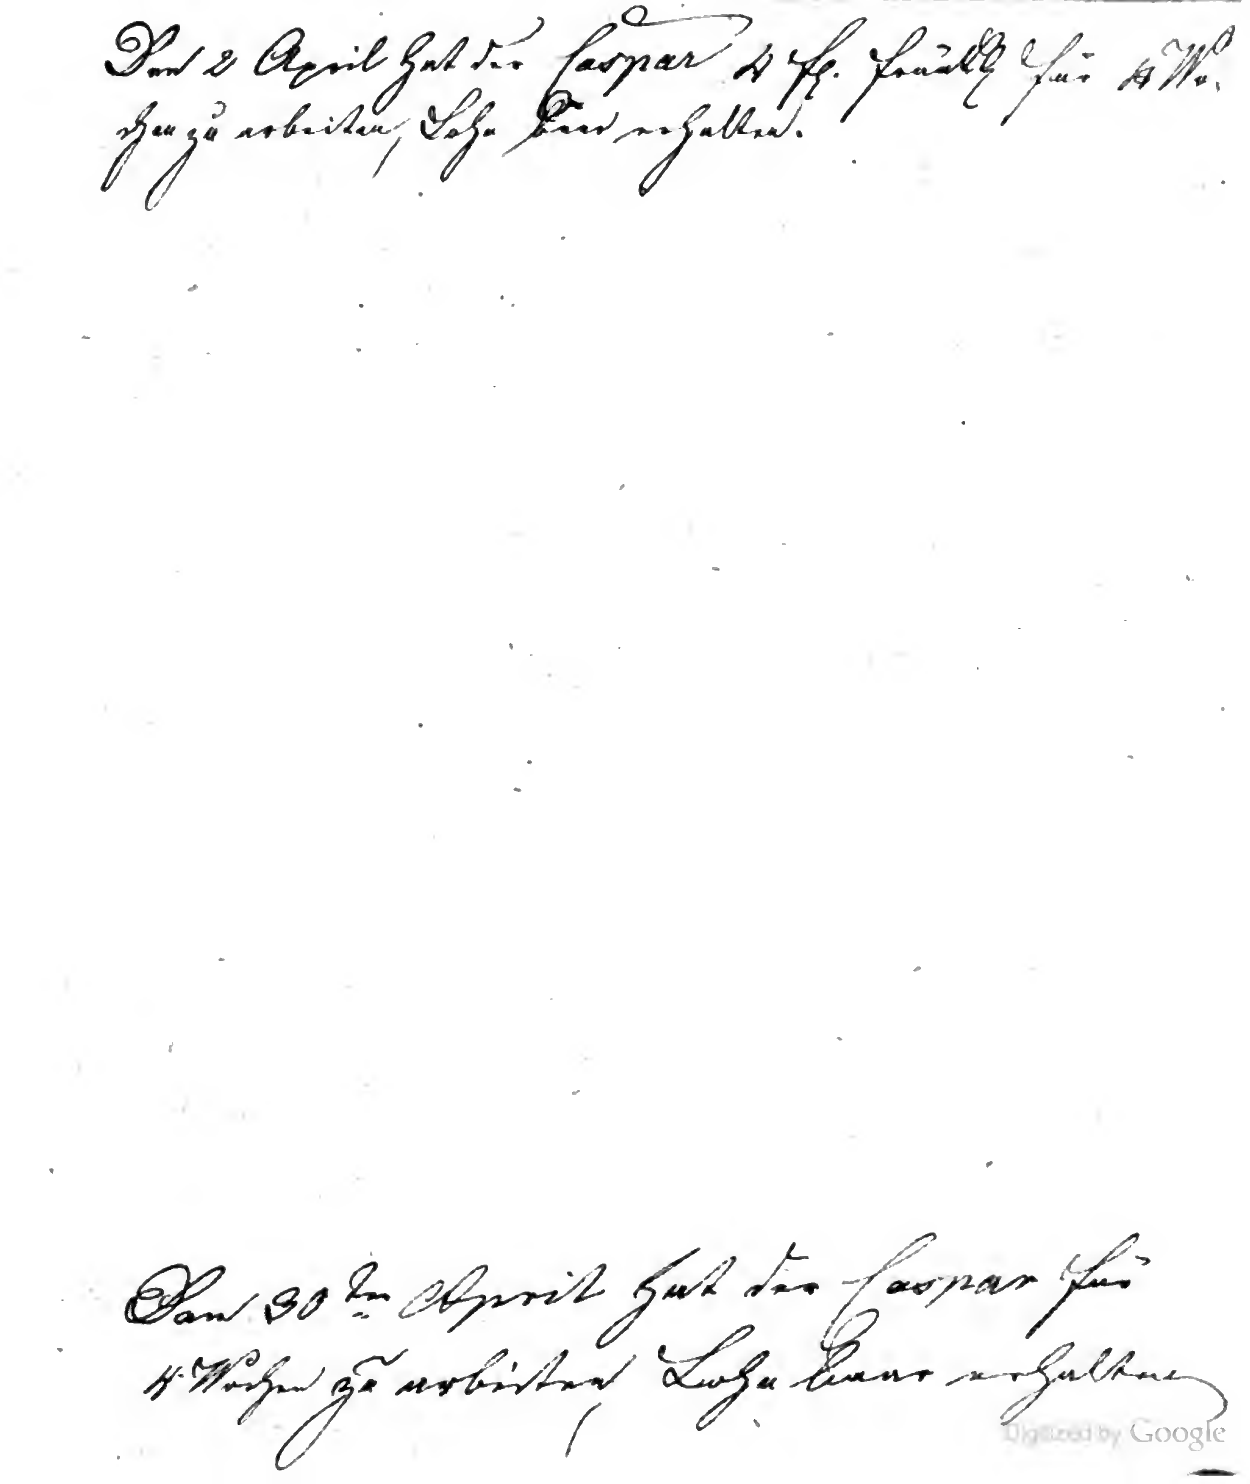 Den 2 April hat der Caspar 4 fl. fränkl für 4 Wo,
chen zu arbeiten, Lohn baar erhalten.
Den 30ten April hat der Caspar für
4 Wochen zu arbeiten, Lohn baar erhalten
Digitized by Google